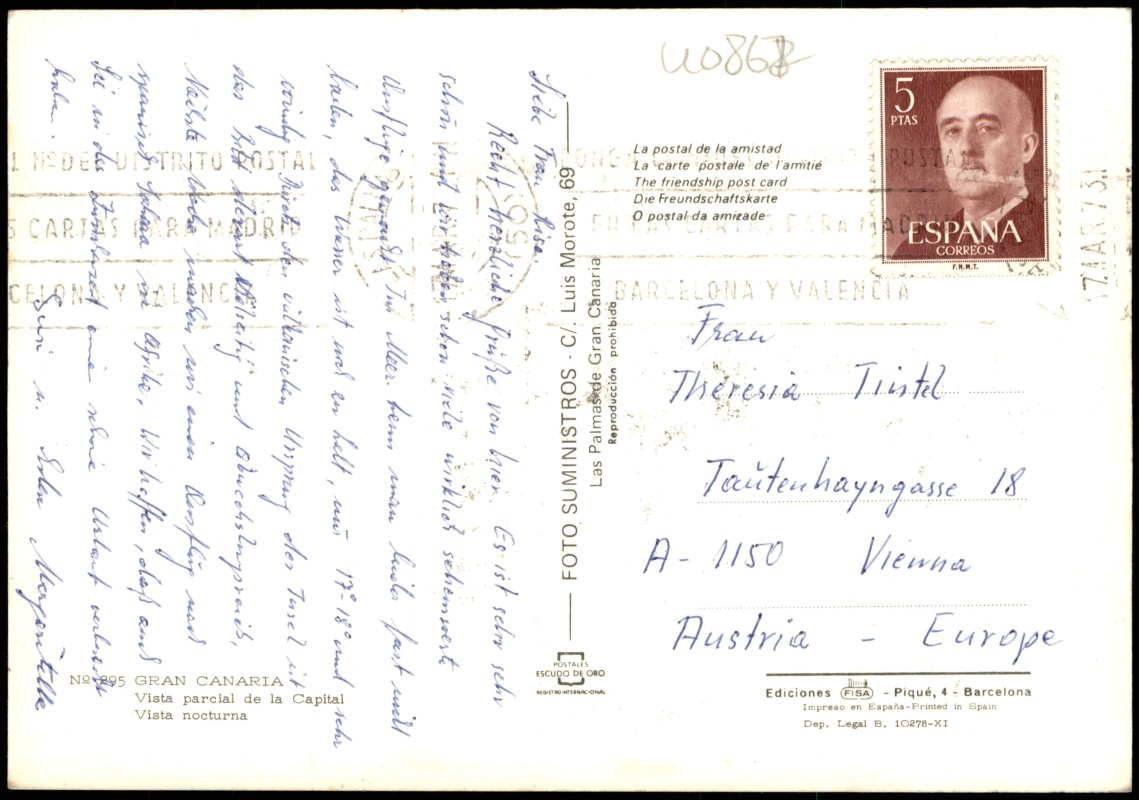 Liebe Frau Risa.
Recht herzliche Grüße von hier. Es ist sehr sehr
schön und wir haben schon viele wirklich sehenswerte
Ausflüge gemacht. Im Meer kann man leider fast nicht
baden, das Wasser ist noch zu kalt, nur 17°-18° und sehr
windig. Durch den vulkanischen Ursprung der Insel ist
das Bild vielseitig und abwechslungsreich,
Nächste Woche machen wir einen Ausflug nach
spanisch Sahara in Afrika. Wir hoffen, daß auch
Sie in der Zwischenzeit eine schöne Urlaub verbracht
haben.
Nº 895 GRAN CANARIA
Vista parcial de la Capital
Vista nocturna
FOTO SUMINISTROS - C/. Luis Morote, 69
Las Palmas de Gran Canaria
Reproducción prohibida
POSTALES
ESCUDO DE ORO
REGISTRO INTERNACIONAL
La postal de la amistad
La carte postale de l'amitié
The friendship post card
Die Freundschaftskarte
O postal da amizade
5
PTAS
ESPAÑA
CORREOS
F.N.M.T.
Nº DEL DISTRITO POSTAL
CARTAS PARA MADRID
CELONA Y VALENCIA
POSTAL
EN LAS CARTAS PARA MAD
BARCELONA Y VALENCIA
Frau
Theresia Tintel
Tautenhayngasse 18
A - 1150 Vienna
Austria - Europe
Ediciones FISA - Piqué, 4 - Barcelona
Impreso en España-Printed in Spain
Dep. Legal B. 10278-XI